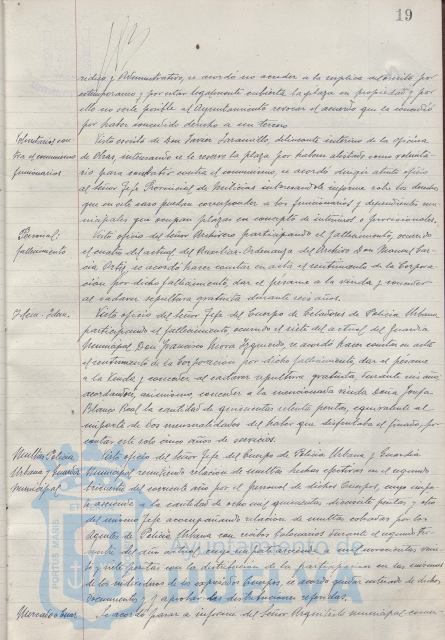 19
ridica y Administrativo, se acordó no acceder a la suplica del escrito, por
extemporaneo y por estar legalmente cubierta la plaza en propiedad y por
ello no serle posible al Ayuntamiento revocar el acuerdo que la concedió
por haber concedido derecho a un tercero
Voluntarios con-
tra el comunismo
funcionarios
Visto escrito de Don Javier Jaramillo, delineante interino de la oficina
de Obras interesando se le reserve la plaza por haberse alistado como volunta-
rio para combatir contra el comunismo, se acordó dirigir atento oficio
al Señor Jefe Provincial de Milicias interesandole informe sobre los derechos
que en este caso puedan corresponder a los funcionarios y dependientes mu-
nicipales que ocupan plazas en concepto de interinos o provisionales.
Personal:
fallecimiento
Visto oficio del Señor Archivero participando el fallecimiento, ocurrido
el cuatro del actual del Auxiliar-Ordenanza del Archivo Don Manuel Gar-
cia Ortiz, se acordó hacer constar en acta el sentimiento de la Corpora-
ción por dicho fallecimiento, dar el pesame a la viuda, y conceder
al cadaver sepultura gratuita durante seis años.
Idem. Idem.
Visto oficio del Señor Jefe del Cuerpo de Celadores de Policia Urbana
participando el fallecimiento, ocurrido el siete del actual del Guardia
Municipal Don Francisco Izquierdo, se acordó hacer constar en acta
el sentimiento de la Corporación por dicho fallecimiento, dar el pésame
a la Viuda, y conceder al cadaver sepultura gratuita, durante seis años,
acordandose, asimismo, conceder a la mencionada viuda Doña Josefa
Blanco Real la cantidad de quinientas setenta pesetas, equivalente al
importe de dos mensualidades del haber que disfrutaba el finado, por
contar este solo cinco años de servicios.
Multas Policia
Urbana y Guardia
municipal
Visto oficio del Señor Jefe del Cuerpo de Policia Urbana y Guardia
Municipal remitiendo relacion de multas hechas efectivas en el segundo
trimestre del corriente año por el personal de dichos Cuerpos, cuyo impor-
te asciende a la cantidad de ocho mil quinientas dieciseis pesetas, y otro
del mismo Jefe acompañando relacion de multas cobradas por los
Agentes de Policia Urbana con recibos talonarios durante el segundo tri-
mestre del año actual, cuyo importe asciende a mil novecientas vein-
te y siete pesetas con la distribucion de la participacion en las mismas
de los individuos de los expresados Cuerpos, se acordó quedar enterado de dichos
documentos y aprobar las distribuciones referidas.
Mercado
Se acordó pasar a informe del Señor Arquitecto municipal
PORTUS MAGN